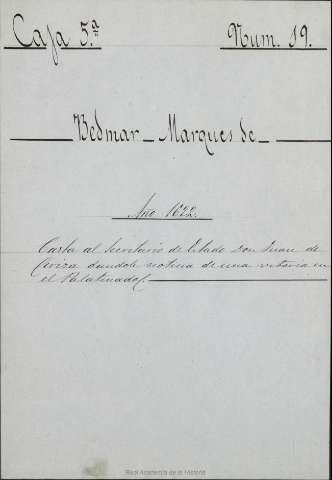 Caja 5.ª Num. 19.
Bedmar Marques de
Año 1622.
Carta al Secretario de Estado don Juan de
Ciriza dandole noticia de una victoria en
el Palatinado.
Real Academia de la Historia